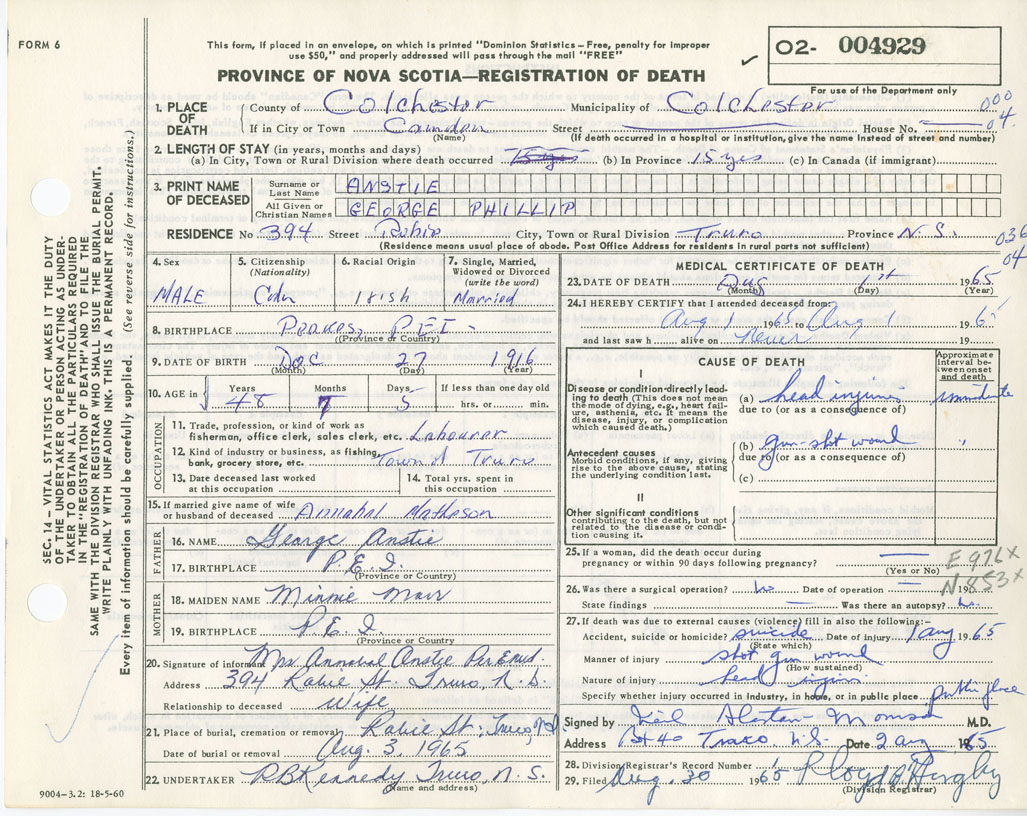 FORM 6
This form, if placed in an envelope, on which is printed "Dominion Statistics – Free, penalty for improper
use $50," and properly addressed will pass through the mail "FREE"
O2- 004929
For use of the Department only
PROVINCE OF NOVA SCOTIA—REGISTRATION OF DEATH
1. PLACE OF DEATH
County of Colchester Municipality of Colchester 000
If in City or Town Camden Street House No. 04.
(Name) (If death occurred in a hospital or institution, give the name instead of street and number)
2. LENGTH OF STAY (in years, months and days)
(a) In City, Town or Rural Division where death occurred 15 yrs (b) In Province 15 yrs (c) In Canada (if immigrant)
3. PRINT NAME OF DECEASED
Surname or Last Name ANSTIE
All Given or Christian Names GEORGE PHILLIP
RESIDENCE No 394 Street Robie City, Town or Rural Division Truro Province N S. 036
(Residence means usual place of abode. Post Office Address for residents in rural parts not sufficient) 04
4. Sex
MALE
5. Citizenship
(Nationality)
Cdn
6. Racial Origin
Irish
7. Single, Married,
Widowed or Divorced
(write the word)
Married
8. BIRTHPLACE PEI
(Province or Country)
9. DATE OF BIRTH Dec 27 1916
(Month) (Day) (Year)
10. AGE in Years Months Days If less than one day old
48 7 5 hrs. or min.
OCCUPATION
11. Trade, profession, or kind of work as
fisherman, office clerk, sales clerk, etc. Labourer
12. Kind of industry or business, as fishing,
bank, grocery store, etc. Town of Truro
13. Date deceased last worked
at this occupation
14. Total yrs. spent in
this occupation
15. If married give name of wife
or husband of deceased Annabal Matheson
FATHER
16. NAME George Anstie
17. BIRTHPLACE P.E.I.
(Province or Country)
MOTHER
18. MAIDEN NAME Minnie
19. BIRTHPLACE P.E.I.
(Province or Country)
20. Signature of informant Mrs. Annabal Anstie Per
Address 394 Robie St. Truro, N.S.
Relationship to deceased Wife
21. Place of burial, cremation or removal Robie St. Truro, NS
Date of burial or removal Aug. 3, 1965
22. UNDERTAKER R B Kennedy Truro, N.S.
(Name and address)
9004—3.2: 18-5-60
MEDICAL CERTIFICATE OF DEATH
23. DATE OF DEATH Aug 1st 1965
(Month) (Day) (Year)
24. I HEREBY CERTIFY that I attended deceased from:
Aug 1 1965 to Aug 1 196
and last saw h alive on Never 19
CAUSE OF DEATH
Approximate
interval between onset
and death
I
Disease or condition directly leading
to death (This does not mean
the mode of dying, e.g., heart failure,
asthenia, etc. It means the
disease, injury, or complication
which caused death.)
(a) head injuries immediate
due to (or as a consequence of)
Antecedent causes
Morbid conditions, if any, giving
rise to the above cause, stating
the underlying condition last.
(b) gun-shot wound "
due to (or as a consequence of)
(c)
II
Other significant conditions
contributing to the death, but not
related to the disease or condition
causing it.
25. If a woman, did the death occur during
pregnancy or within 90 days following pregnancy?
(Yes or No)
E 976X
N 853X
26. Was there a surgical operation? No Date of operation 19
State findings Was there an autopsy? No.
27. If death was due to external causes (violence) fill in also the following:—
Accident, suicide or homicide? suicide Date of injury 1 Aug 1965
(State which)
Manner of injury shot gun wound
(How sustained)
Nature of injury head injuries
Specify whether injury occurred in industry, in home, or in public place public place
Signed by Neil M.D.
Address Truro, N.S. Date 2 Aug 1965
28. Division Registrar's Record Number
29. Filed Aug. 30 1965
(Division Registrar)
SEC. 14 — VITAL STATISTICS ACT MAKES IT THE DUTY
OF THE UNDERTAKER OR PERSON ACTING AS UNDERTAKER
TO OBTAIN ALL THE PARTICULARS REQUIRED
IN THE "REGISTRATION OF DEATH" AND TO FILE THE
SAME WITH THE DIVISION REGISTRAR WHO SHALL ISSUE THE BURIAL PERMIT.
WRITE PLAINLY WITH UNFADING INK. THIS IS A PERMANENT RECORD.
Every item of information should be carefully supplied. (See reverse side for instructions.)